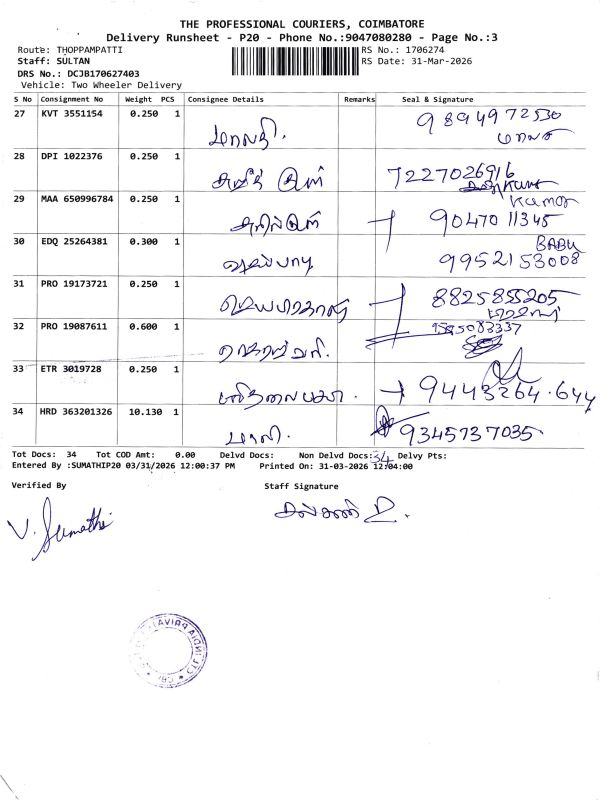 THE PROFESSIONAL COURIERS, COIMBATORE
Delivery Runsheet - P20 - Phone No.:9047080280 - Page No.:3
Route: THOPPAMPATTI RS No.: 1706274
Staff: SULTAN RS Date: 31-Mar-2026
DRS No.: DCJB170627403
Vehicle: Two Wheeler Delivery
S No Consignment No Weight PCS Consignee Details Remarks Seal & Signature
27 KVT 3551154 0.250 1 மாலதி. 9894972530
மாலதி
28 DPI 1022376 0.250 1 7227026916
Kumar
29 MAA 650996784 0.250 1 9047011345
30 EDQ 25264381 0.300 1 BABU
9952153008
31 PRO 19173721 0.250 1 8825855205
32 PRO 19087611 0.600 1
33 ETR 3019728 0.250 1 9443264.644
34 HRD 363201326 10.130 1 மாலி. 9345737035
Tot Docs: 34 Tot COD Amt: 0.00 Delvd Docs: Non Delvd Docs: 34 Delvy Pts:
Entered By :SUMATHIP20 03/31/2026 12:00:37 PM Printed On: 31-03-2026 12:04:00
Verified By Staff Signature
V. Sumathi